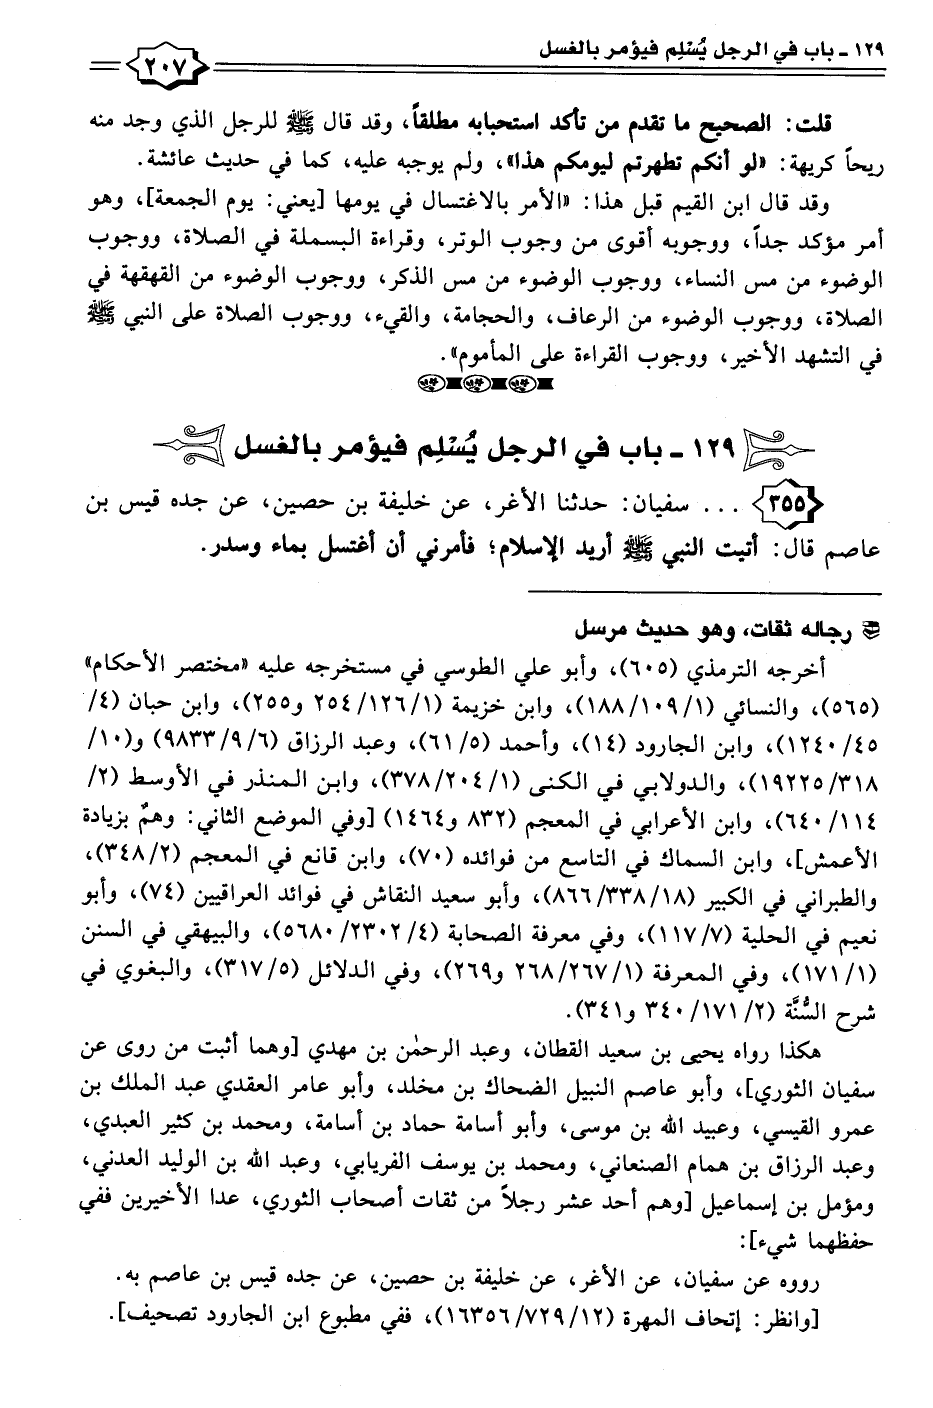 ١٢٩ - باب في الرجل يُسْلِم فيؤمر بالغسل
٢٠٧
قلت: الصحيح ما تقدم من تأكد استحبابه مطلقاً، وقد قال ﷺ للرجل الذي وجد منه
ريحاً كريهة: «لو أنكم تطهرتم ليومكم هذا»، ولم يوجبه عليه، كما في حديث عائشة.
وقد قال ابن القيم قبل هذا: «الأمر بالاغتسال في يومها [يعني: يوم الجمعة]، وهو
أمر مؤكد جداً، ووجوبه أقوى من وجوب الوتر، وقراءة البسملة في الصلاة، ووجوب
الوضوء من مس النساء، ووجوب الوضوء من مس الذكر، ووجوب الوضوء من القهقهة في
الصلاة، ووجوب الوضوء من الرعاف، والحجامة، والقيء، ووجوب الصلاة على النبي ﷺ
في التشهد الأخير، ووجوب القراءة على المأموم».
١٢٩ - باب في الرجل يُسْلِم فيؤمر بالغسل
٣٥٥ ... سفيان: حدثنا الأغر، عن خليفة بن حصين، عن جده قيس بن
عاصم قال: أتيت النبي ﷺ أريد الإسلام؛ فأمرني أن أغتسل بماء وسدر.
رجاله ثقات، وهو حديث مرسل
أخرجه الترمذي (٦٠٥)، وأبو علي الطوسي في مستخرجه عليه «مختصر الأحكام»
(٥٦٥)، والنسائي (١/١٠٩/١٨٨)، وابن خزيمة (١/١٢٦/٢٥٤ و٢٥٥)، وابن حبان (٤/
٤٥/١٢٤٠)، وابن الجارود (١٤)، وأحمد (٥/٦١)، وعبد الرزاق (٦/٩/٩٨٣٣) و(١٠/
٣١٨/١٩٢٢٥)، والدولابي في الكنى (١/٢٠٤/٣٧٨)، وابن المنذر في الأوسط (٢/
١١٤/٦٤٠)، وابن الأعرابي في المعجم (٨٣٢ و١٤٦٤) [وفي الموضع الثاني: وهمٌ بزيادة
الأعمش]، وابن السماك في التاسع من فوائده (٧٠)، وابن قانع في المعجم (٢/٣٤٨)،
والطبراني في الكبير (١٨/٣٣٨/٨٦٦)، وأبو سعيد النقاش في فوائد العراقيين (٧٤)، وأبو
نعيم في الحلية (٧/١١٧)، وفي معرفة الصحابة (٤/٢٣٠٢/٥٦٨٠)، والبيهقي في السنن
(١/١٧١)، وفي المعرفة (١/٢٦٧/٢٦٨ و٢٦٩)، وفي الدلائل (٥/٣١٧)، والبغوي في
شرح السُّنَّة (٢/١٧١/٣٤٠ و٣٤١).
هكذا رواه يحيى بن سعيد القطان، وعبد الرحمٰن بن مهدي [وهما أثبت من روى عن
سفيان الثوري]، وأبو عاصم النبيل الضحاك بن مخلد، وأبو عامر العقدي عبد الملك بن
عمرو القيسي، وعبيد الله بن موسى، وأبو أسامة حماد بن أسامة، ومحمد بن كثير العبدي،
وعبد الرزاق بن همام الصنعاني، ومحمد بن يوسف الفريابي، وعبد الله بن الوليد العدني،
ومؤمل بن إسماعيل [وهم أحد عشر رجلاً من ثقات أصحاب الثوري، عدا الأخيرين ففي
حفظهما شيء]:
رووه عن سفيان، عن الأغر، عن خليفة بن حصين، عن جده قيس بن عاصم به.
[وانظر: إتحاف المهرة (١٢/٧٢٩/١٦٣٥٦)، ففي مطبوع ابن الجارود تصحيف].